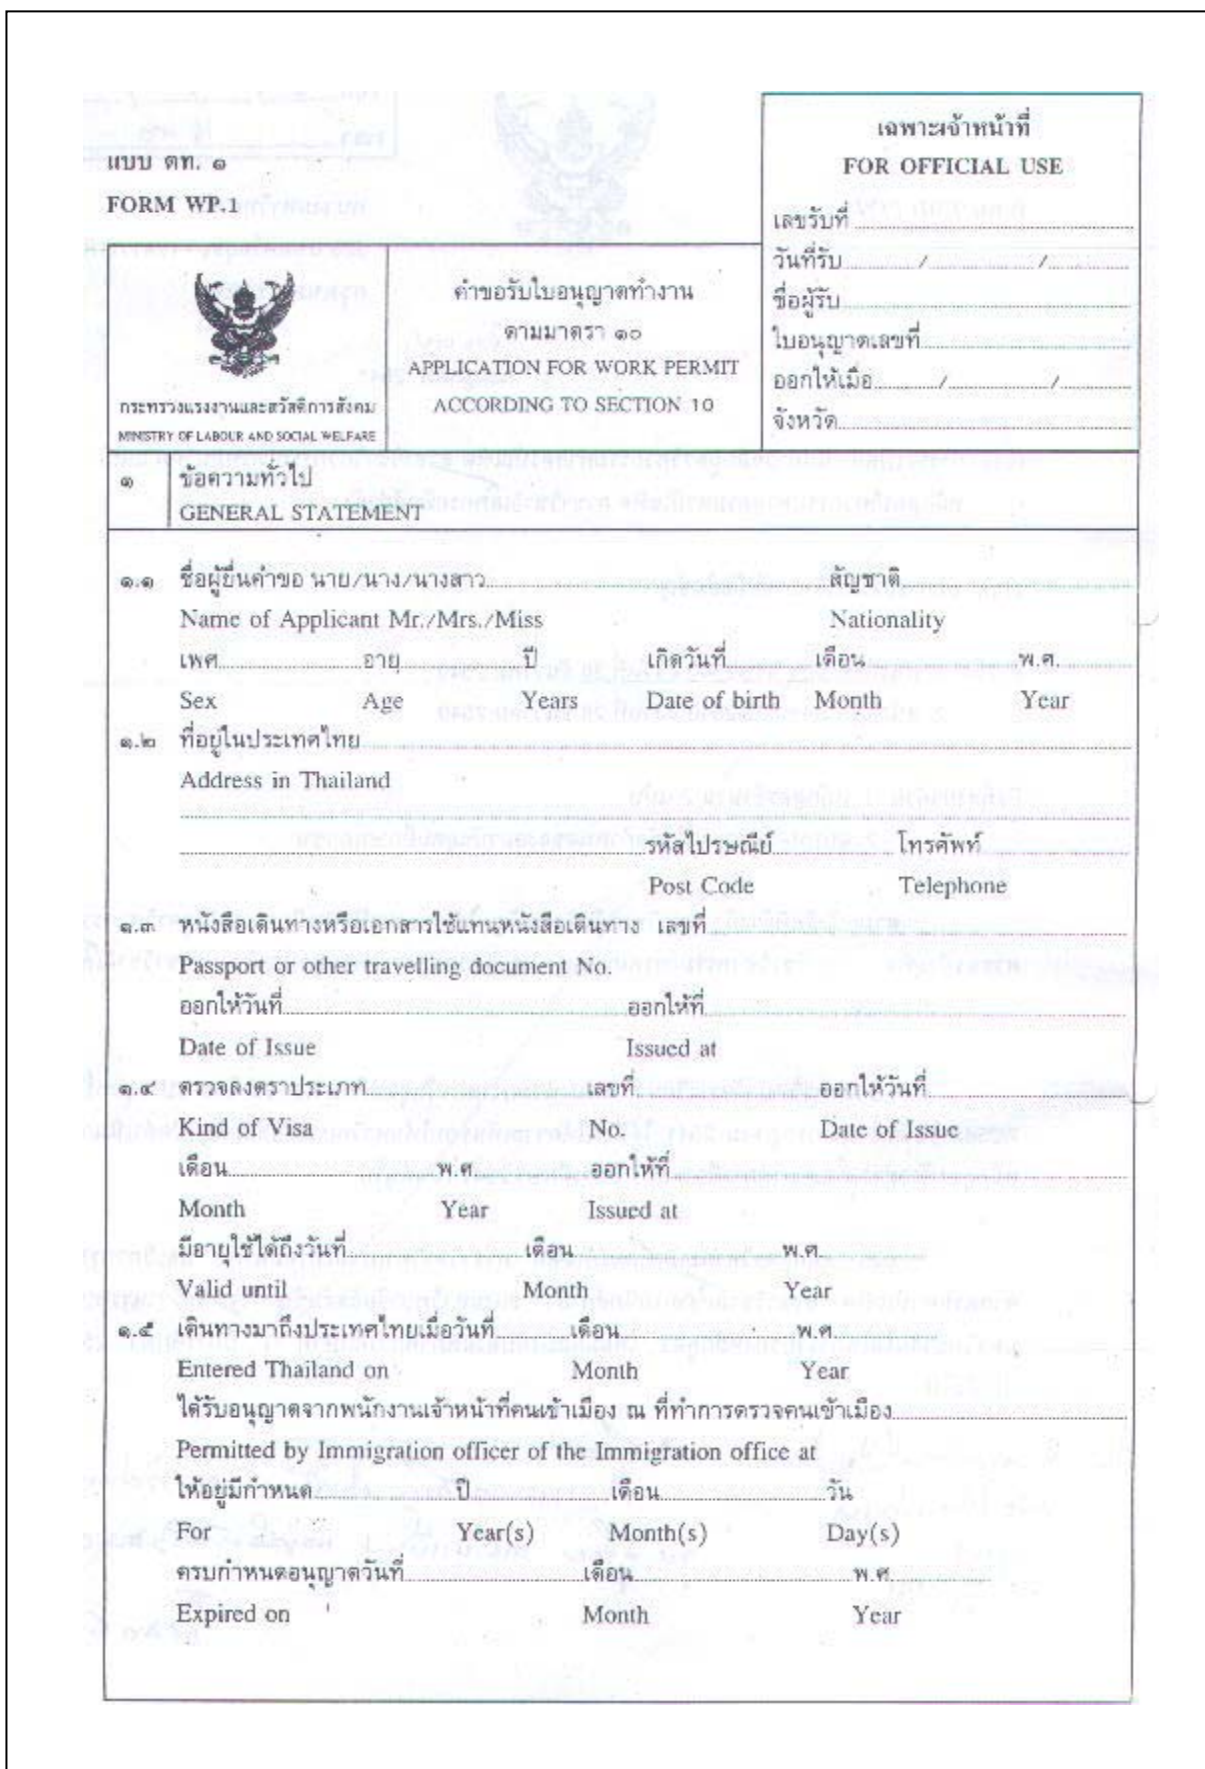 แบบ ตท. ๑
FORM WP.1
เฉพาะเจ้าหน้าที่
FOR OFFICIAL USE
เลขรับที่
วันที่รับ / /
ชื่อผู้รับ
ใบอนุญาตเลขที่
ออกให้เมื่อ / /
จังหวัด
กระทรวงแรงงานและสวัสดิการสังคม
MINISTRY OF LABOUR AND SOCIAL WELFARE
คำขอรับใบอนุญาตทำงาน
ตามมาตรา ๑๐
APPLICATION FOR WORK PERMIT
ACCORDING TO SECTION 10
๑ ข้อความทั่วไป
GENERAL STATEMENT
๑.๑ ชื่อผู้ยื่นคำขอ นาย/นาง/นางสาว สัญชาติ
Name of Applicant Mr./Mrs./Miss Nationality
เพศ อายุ ปี เกิดวันที่ เดือน พ.ศ.
Sex Age Years Date of birth Month Year
๑.๒ ที่อยู่ในประเทศไทย
Address in Thailand
รหัสไปรษณีย์ โทรศัพท์
Post Code Telephone
๑.๓ หนังสือเดินทางหรือเอกสารใช้แทนหนังสือเดินทาง เลขที่
Passport or other travelling document No.
ออกให้วันที่ ออกให้ที่
Date of Issue Issued at
๑.๔ ตรวจลงตราประเภท เลขที่ ออกให้วันที่
Kind of Visa No. Date of Issue
เดือน พ.ศ. ออกให้ที่
Month Year Issued at
มีอายุใช้ได้ถึงวันที่ เดือน พ.ศ.
Valid until Month Year
๑.๕ เดินทางมาถึงประเทศไทยเมื่อวันที่ เดือน พ.ศ.
Entered Thailand on Month Year
ได้รับอนุญาตจากพนักงานเจ้าหน้าที่คนเข้าเมือง ณ ที่ทำการตรวจคนเข้าเมือง
Permitted by Immigration officer of the Immigration office at
ให้อยู่มีกำหนด ปี เดือน วัน
For Year(s) Month(s) Day(s)
ครบกำหนดอนุญาตวันที่ เดือน พ.ศ.
Expired on Month Year